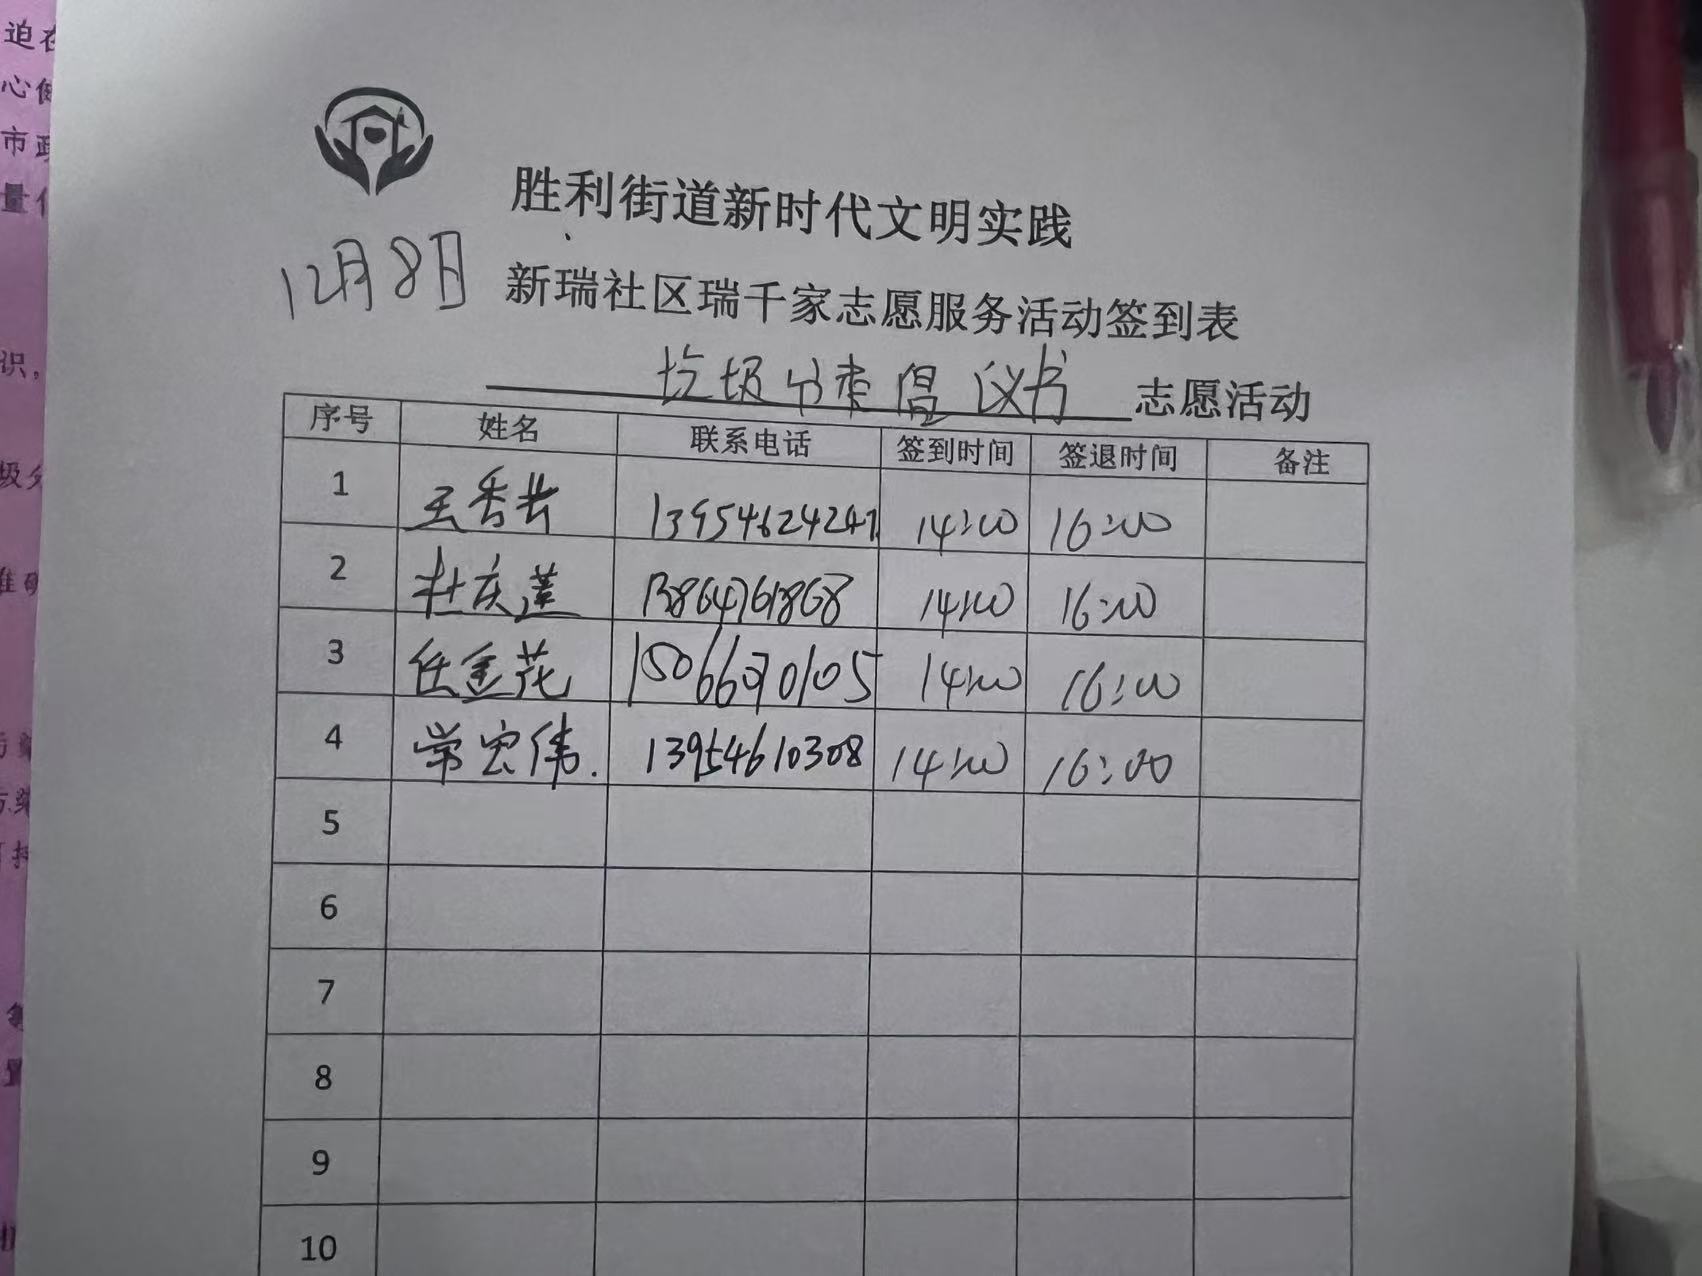 迫在
心健
市政
量
识，
圾分
准确
胜利街道新时代文明实践
12月8日 新瑞社区瑞千家志愿服务活动签到表
垃圾分类倡议书 志愿活动
序号 姓名 联系电话 签到时间 签退时间 备注
1 王香 13954624247 14:00 16:00
2 杜庆莲 13864761868 14:00 16:00
3 任金花 15066070105 14:00 16:00
4 常宏伟. 13954610308 14:00 16:00
5
6
7
8
9
10